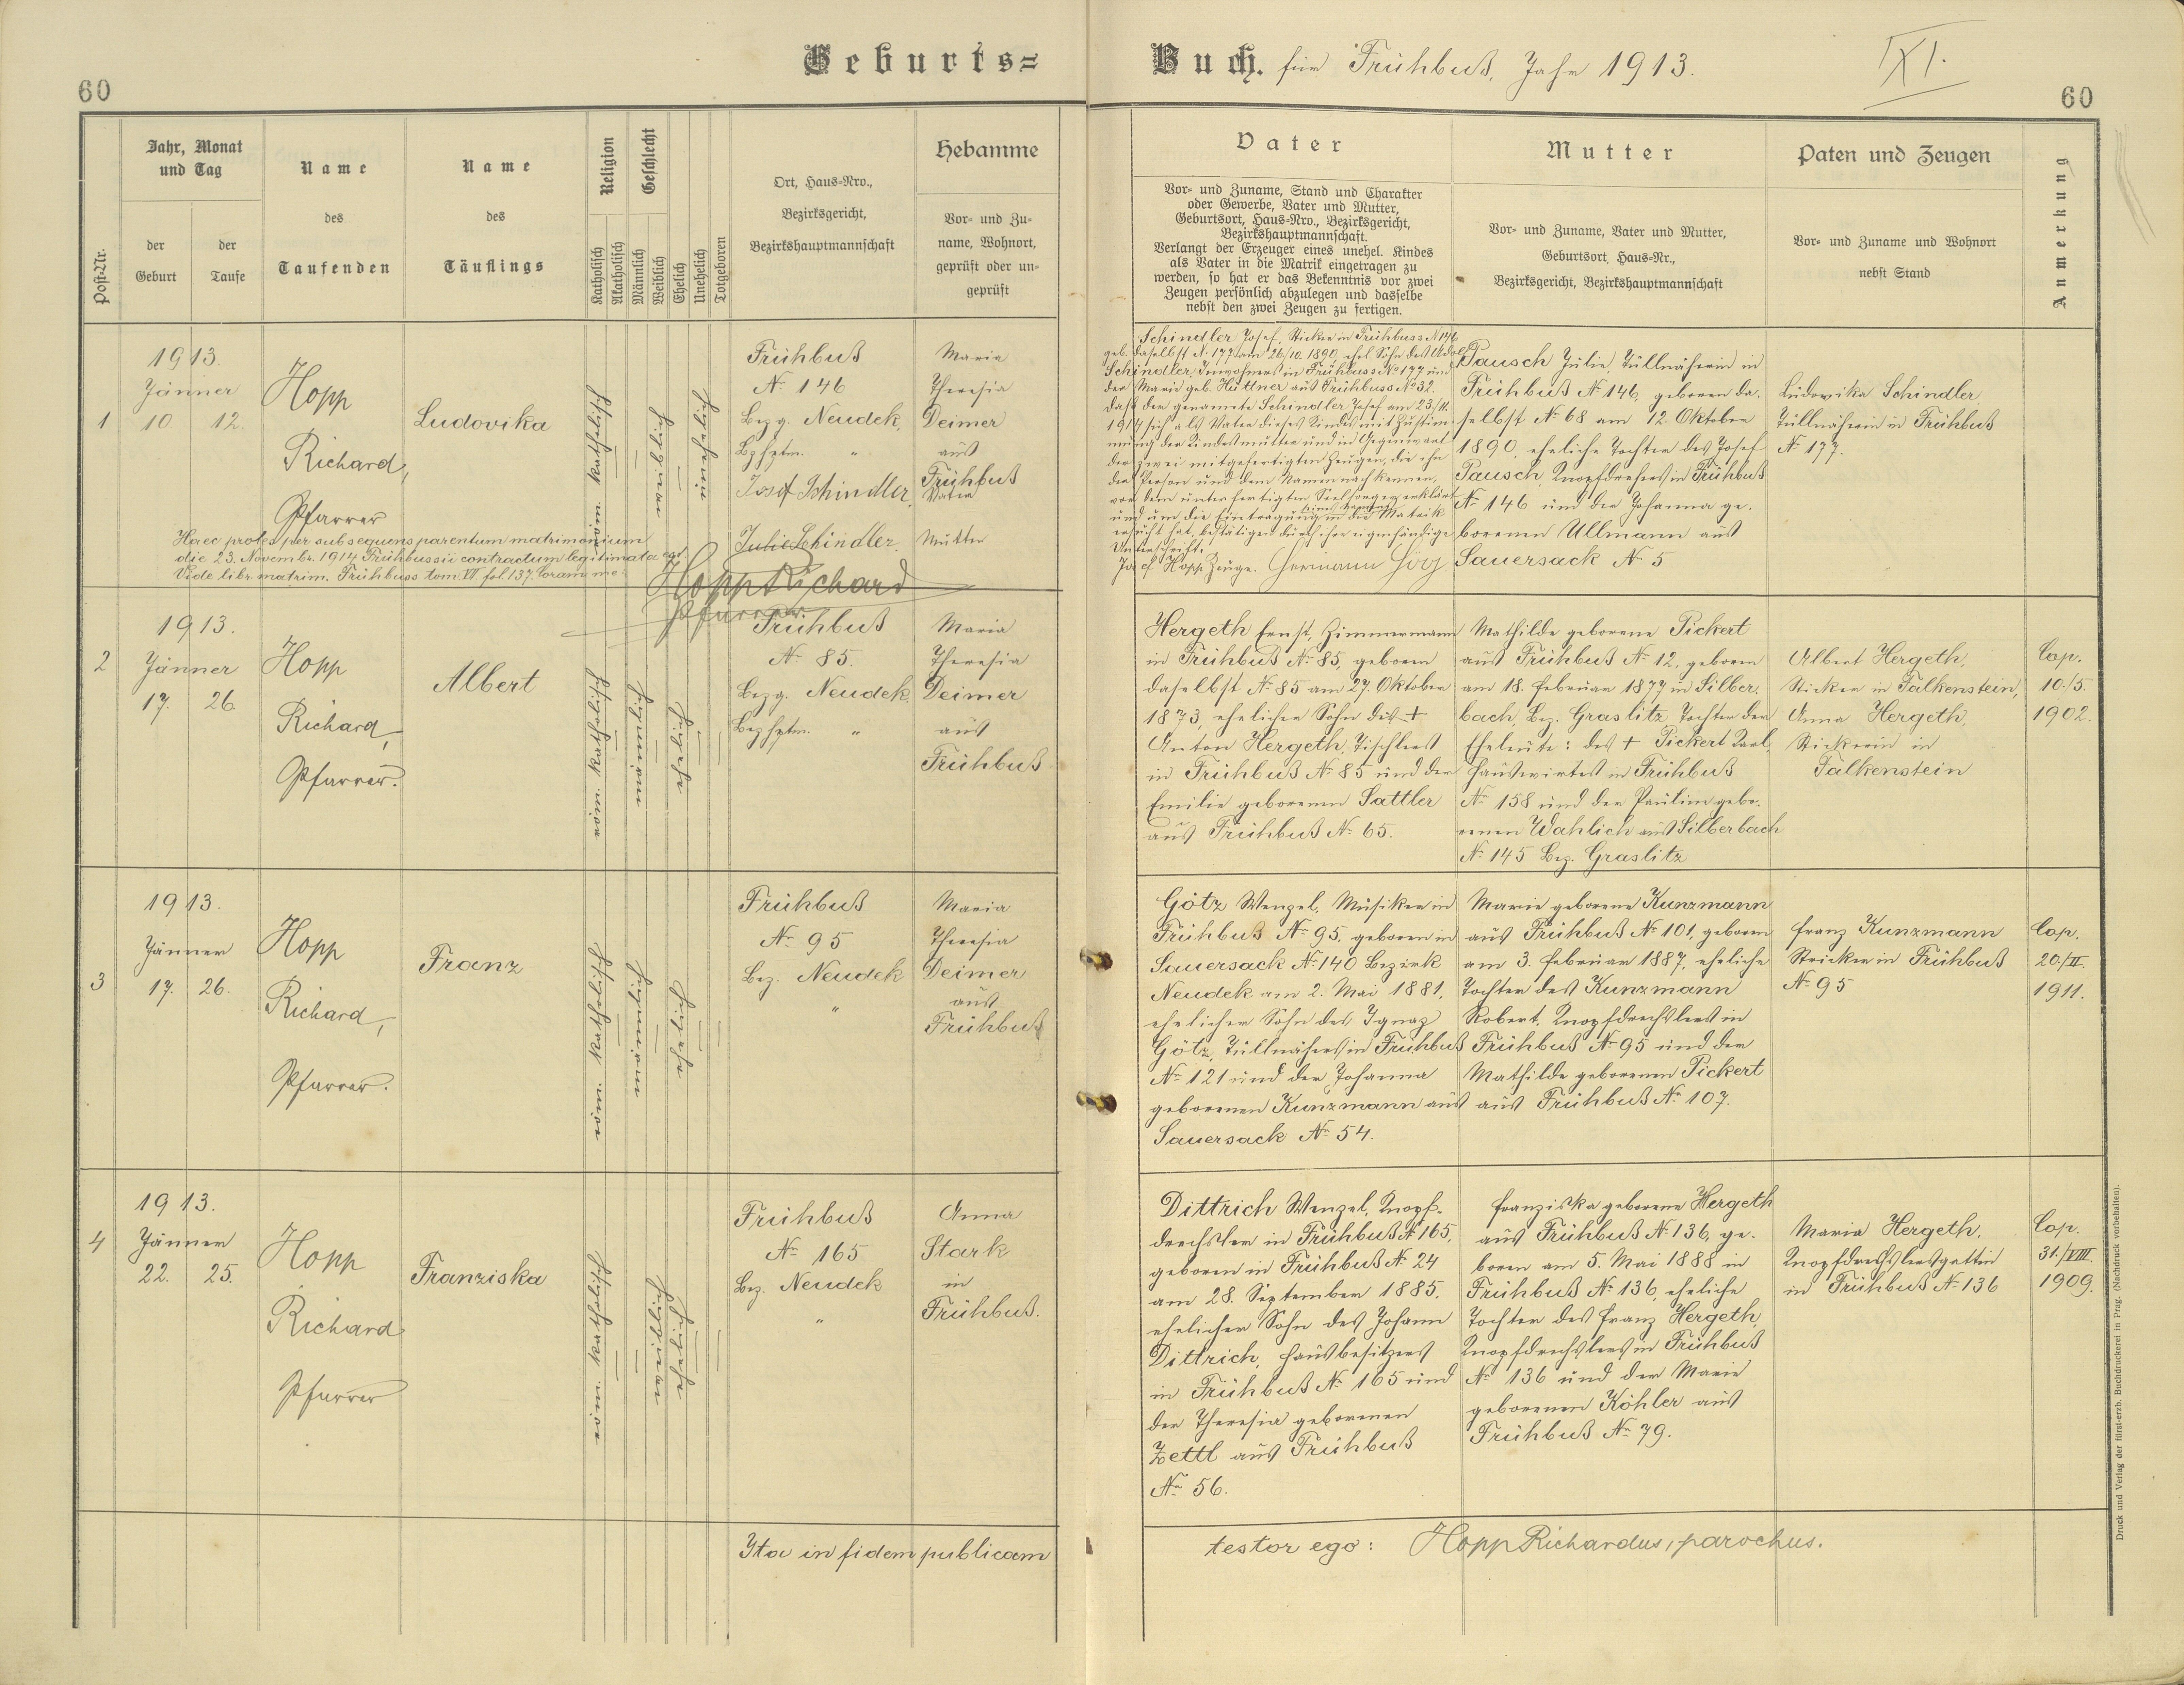 Geburts=
Buch. für Frühbuß, Jahr 1913.
XI.
60
60
Post-Nr.
Jahr, Monat
und Tag
der
Geburt
der
Taufe
Name
des
Taufenden
Name
des
Täuflings
Religion
Katholisch
Akatholisch
Geschlecht
Männlich
Weiblich
Ehelich
Unehelich
Totgeboren
Ort, Haus-Nro.,
Bezirksgericht,
Bezirkshauptmannschaft
Hebamme
Vor- und Zu-
name, Wohnort,
geprüft oder un-
geprüft
Vater
Vor- und Zuname, Stand und Charakter
oder Gewerbe, Vater und Mutter,
Geburtsort, Haus-Nro., Bezirksgericht,
Bezirkshauptmannschaft.
Verlangt der Erzeuger eines unehel. Kindes
als Vater in die Matrik eingetragen zu
werden, so hat er das Bekenntnis vor zwei
Zeugen persönlich abzulegen und dasselbe
nebst den zwei Zeugen zu fertigen.
Mutter
Vor- und Zuname, Vater und Mutter,
Geburtsort, Haus-Nr.,
Bezirksgericht, Bezirkshauptmannschaft
Paten und Zeugen
Vor- und Zuname und Wohnort
nebst Stand
Anmerkung
1
1913.
Jänner
10. 12.
Hopp
Richard,
Pfarrer
Ludovika
röm. katholisch
Frühbuß
No 146
Bezg. Neudek,
Bzhptm. "
Josef Schindler,
Vater
Julie Schindler.
Mutter
Maria
Theresia
Deimer
aus
Frühbuß
Haec proles per subsequens parentum matrimonium
die 23. Novembr. 1914 Frühbussii contractum legitimata est.
Vide libr. matrim. Frühbuss tom VI. fol. 137. Coram me:
Hopp Richard
Pfarrer.
Schindler Josef, Sticker in Frühbuss No 146
geb. daselbst No 177 am 26/10. 1890, ehel. Sohn des Adolf
Schindler, Inwohners in Frühbuss No 177 und
der Marie geb. Hüttner aus Frühbuss No 32.
Daß der genannte Schindler Josef am 23./11.
1914 sich als Vater dieses Kindes mit Zustim-
mung der Kindesmutter und in Gegenwart
der zwei mitgefertigten Zeugen, die ihn
der Person und dem Namen nach kennen,
vor dem unterfertigten Seelsorger erklärt
und um die Eintragung in die Matrik
ersucht hat, bestätigen durch ihre eigenhändige
Unterschrift.
Josef Hopp, Zeuge.
Pausch Julie, Tüllnäherin in
Frühbuß No 146, geboren da-
selbst No 68 am 12. Oktober
1890, eheliche Tochter des Josef
Pausch, Knopfdrehers in Frühbuß
No 146 und der Johanna ge-
borenen Ullmann aus
Sauersack No 5
Ludovika Schindler,
Tüllnäherin in Frühbuß
No 177.
2
1913.
Jänner
17. 26.
Hopp
Richard,
Pfarrer.
Albert
röm. katholisch
Frühbuß
No 85.
Bezg. Neudek,
Bezhptm. "
Maria
Theresia
Deimer
aus
Frühbuß
Hergeth Ernst, Zimmermann
in Frühbuß No 85, geboren
daselbst No 85 am 27. Oktober
1873, ehelicher Sohn des +
Anton Hergeth, Tischlers
in Frühbuß No 85 und der
Emilie geborenen Sattler
aus Frühbuß No 65.
Mathilde geborene Pickert
aus Frühbuß No 12, geboren
am 18. Februar 1877 in Silber-
bach, Bez. Graslitz, Tochter der
Eheleute: des + Pickert Karl,
Hauswirtes in Frühbuß
No 158 und der Pauline gebo-
renen Wahlich aus Silberbach
No 145 Bez. Graslitz
Albert Hergeth,
Sticker in Falkenstein,
Anna Hergeth,
Stickerin in
Falkenstein
Cop.
10./5.
1902.
3
1913.
Jänner
17. 26.
Hopp
Richard,
Pfarrer.
Franz
röm. katholisch
Frühbuß
No 95
Bez. Neudek
"
Maria
Theresia
Deimer
aus
Frühbuß
Götz Wenzel, Musiker in
Frühbuß No 95, geboren in
Sauersack No 140 Bezirk
Neudek am 2. Mai 1881,
ehelicher Sohn des Ignaz
Götz, Tüllnähers in Frühbuß
No 121 und der Johanna
geborenen Kunzmann aus
Sauersack No 54.
Marie geborene Kunzmann
aus Frühbuß No 101, geboren
am 3. Februar 1887, eheliche
Tochter des Kunzmann
Robert, Knopfdrechslers in
Frühbuß No 95 und der
Mathilde geborenen Pickert
aus Frühbuß No 107.
Franz Kunzmann
Stricker in Frühbuß
No 95
Cop.
20./II.
1911.
4
1913.
Jänner
22. 25.
Hopp
Richard
Pfarrer
Franziska
röm. katholisch
Frühbuß
No 165
Bez. Neudek
"
Anna
Stark
in
Frühbuß.
Dittrich Wenzel, Knopf-
drechsler in Frühbuß No 165,
geboren in Frühbuß No 24
am 28. September 1885,
ehelicher Sohn des Johann
Dittrich, Hausbesitzers
in Frühbuß No 165 und
der Theresia geborenen
Zettl aus Frühbuß
No 56.
Franziska geborene Hergeth
aus Frühbuß No 136, ge-
boren am 5. Mai 1888 in
Frühbuß No 136, eheliche
Tochter des Franz Hergeth,
Knopfdrechslers in Frühbuß
No 136 und der Marie
geborenen Köhler aus
Frühbuß No 79.
Maria Hergeth,
Knopfdrechslersgattin
in Frühbuß No 136
Cop.
31./VIII.
1909.
Ita in fidem publicam
testor ego: Hopp Richardus, parochus.
Druck und Verlag der fürst-erzb. Buchdruckerei in Prag. (Nachdruck vorbehalten).